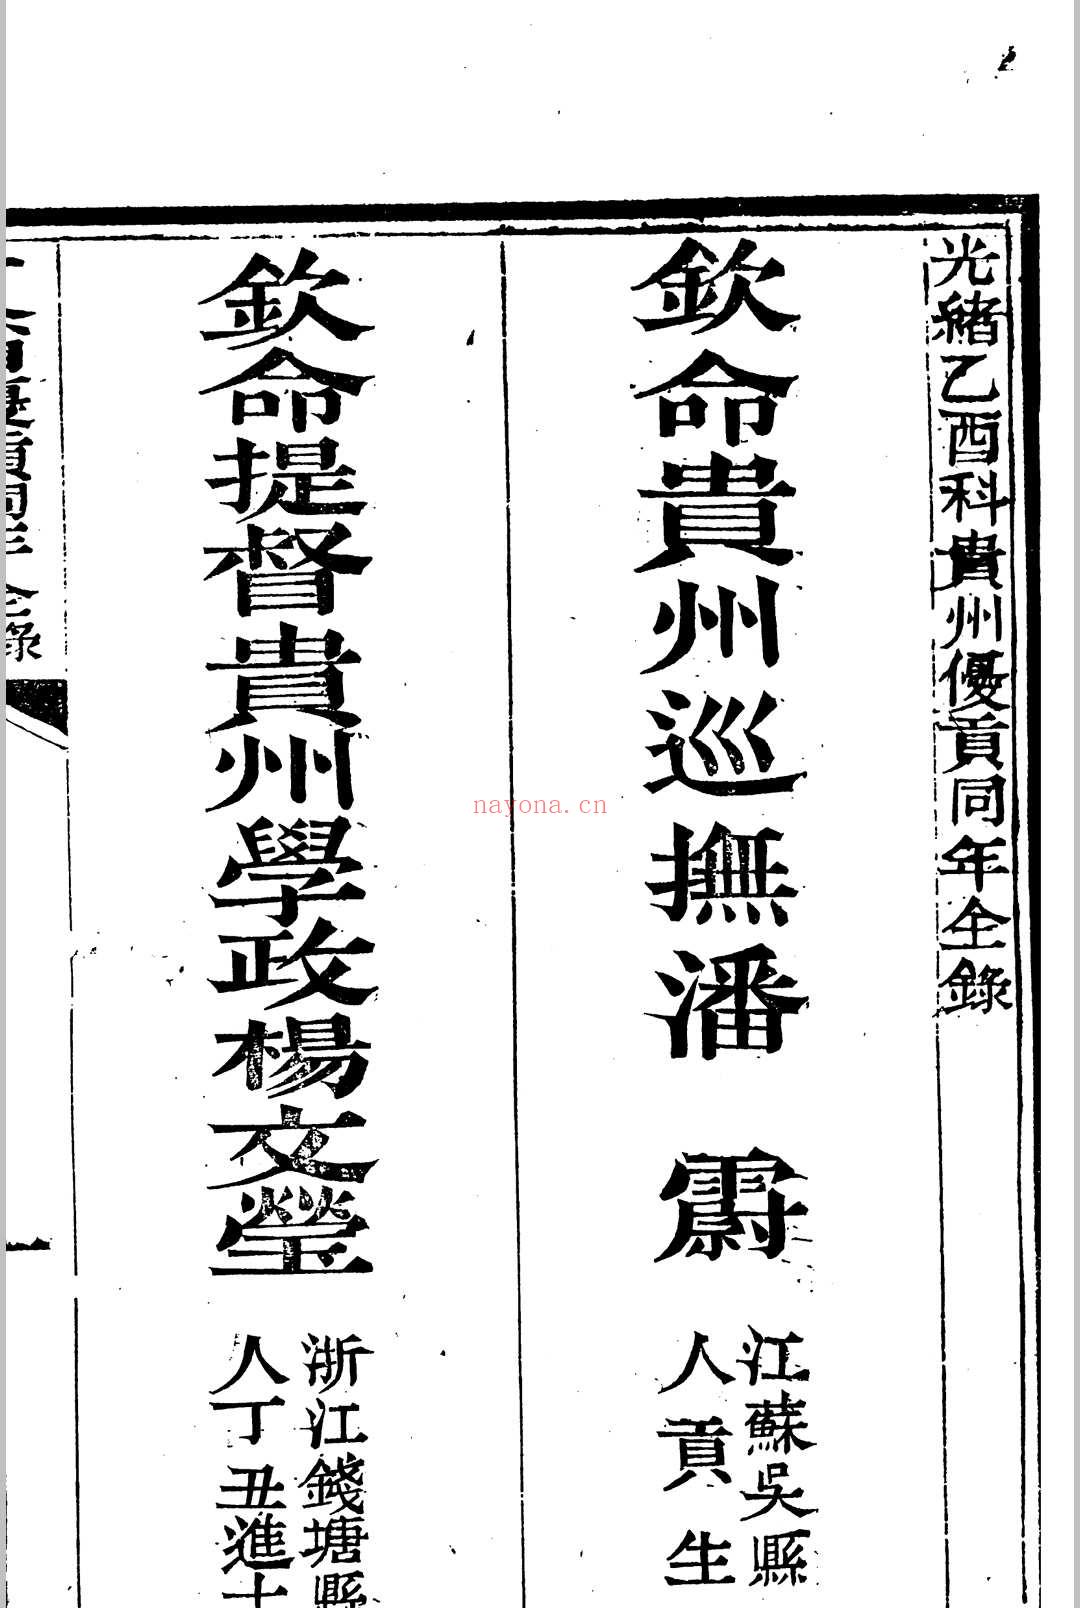 光緒乙酉科貴州優貢同年全錄
欽命貴州巡撫潘 霨
江蘇吳縣
人貢生
欽命提督貴州學政楊文瑩
浙江錢塘縣
人丁丑進士
優貢同年全錄
一
nayona.cn